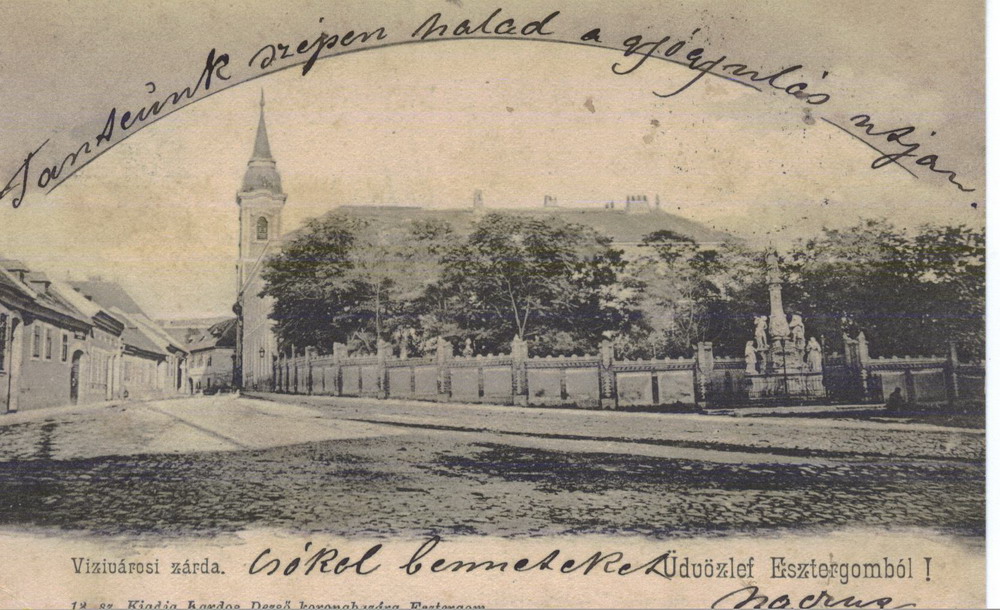 Tantscünk szépen halad a gyógyulás utján.
Vizivárosi zárda. Csókol benneteket Üdvözlet Esztergomból !
12. sz. Kiadja Kardos Dezső koronabazára Esztergom